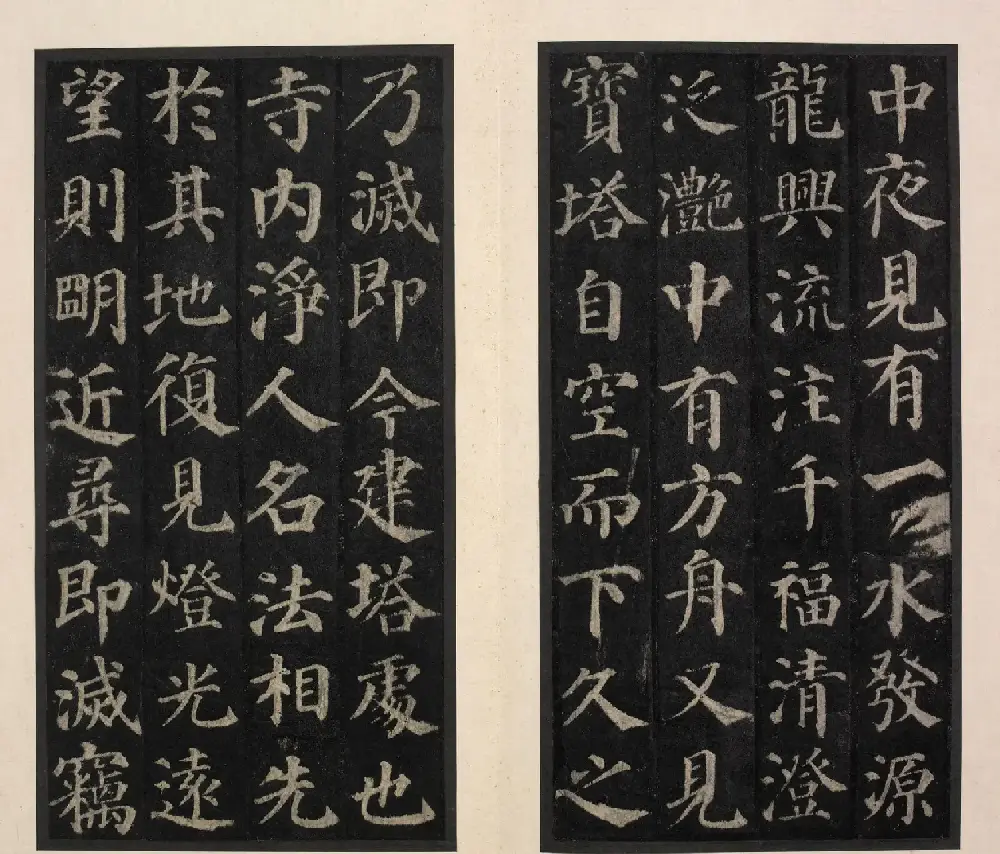 中夜見有一水發源
龍興流注千福清澄
泛灩中有方舟又見
寶塔自空而下久之
乃滅即今建塔處也
寺內淨人名法相先
於其地復見燈光遠
望則明近尋即滅竊